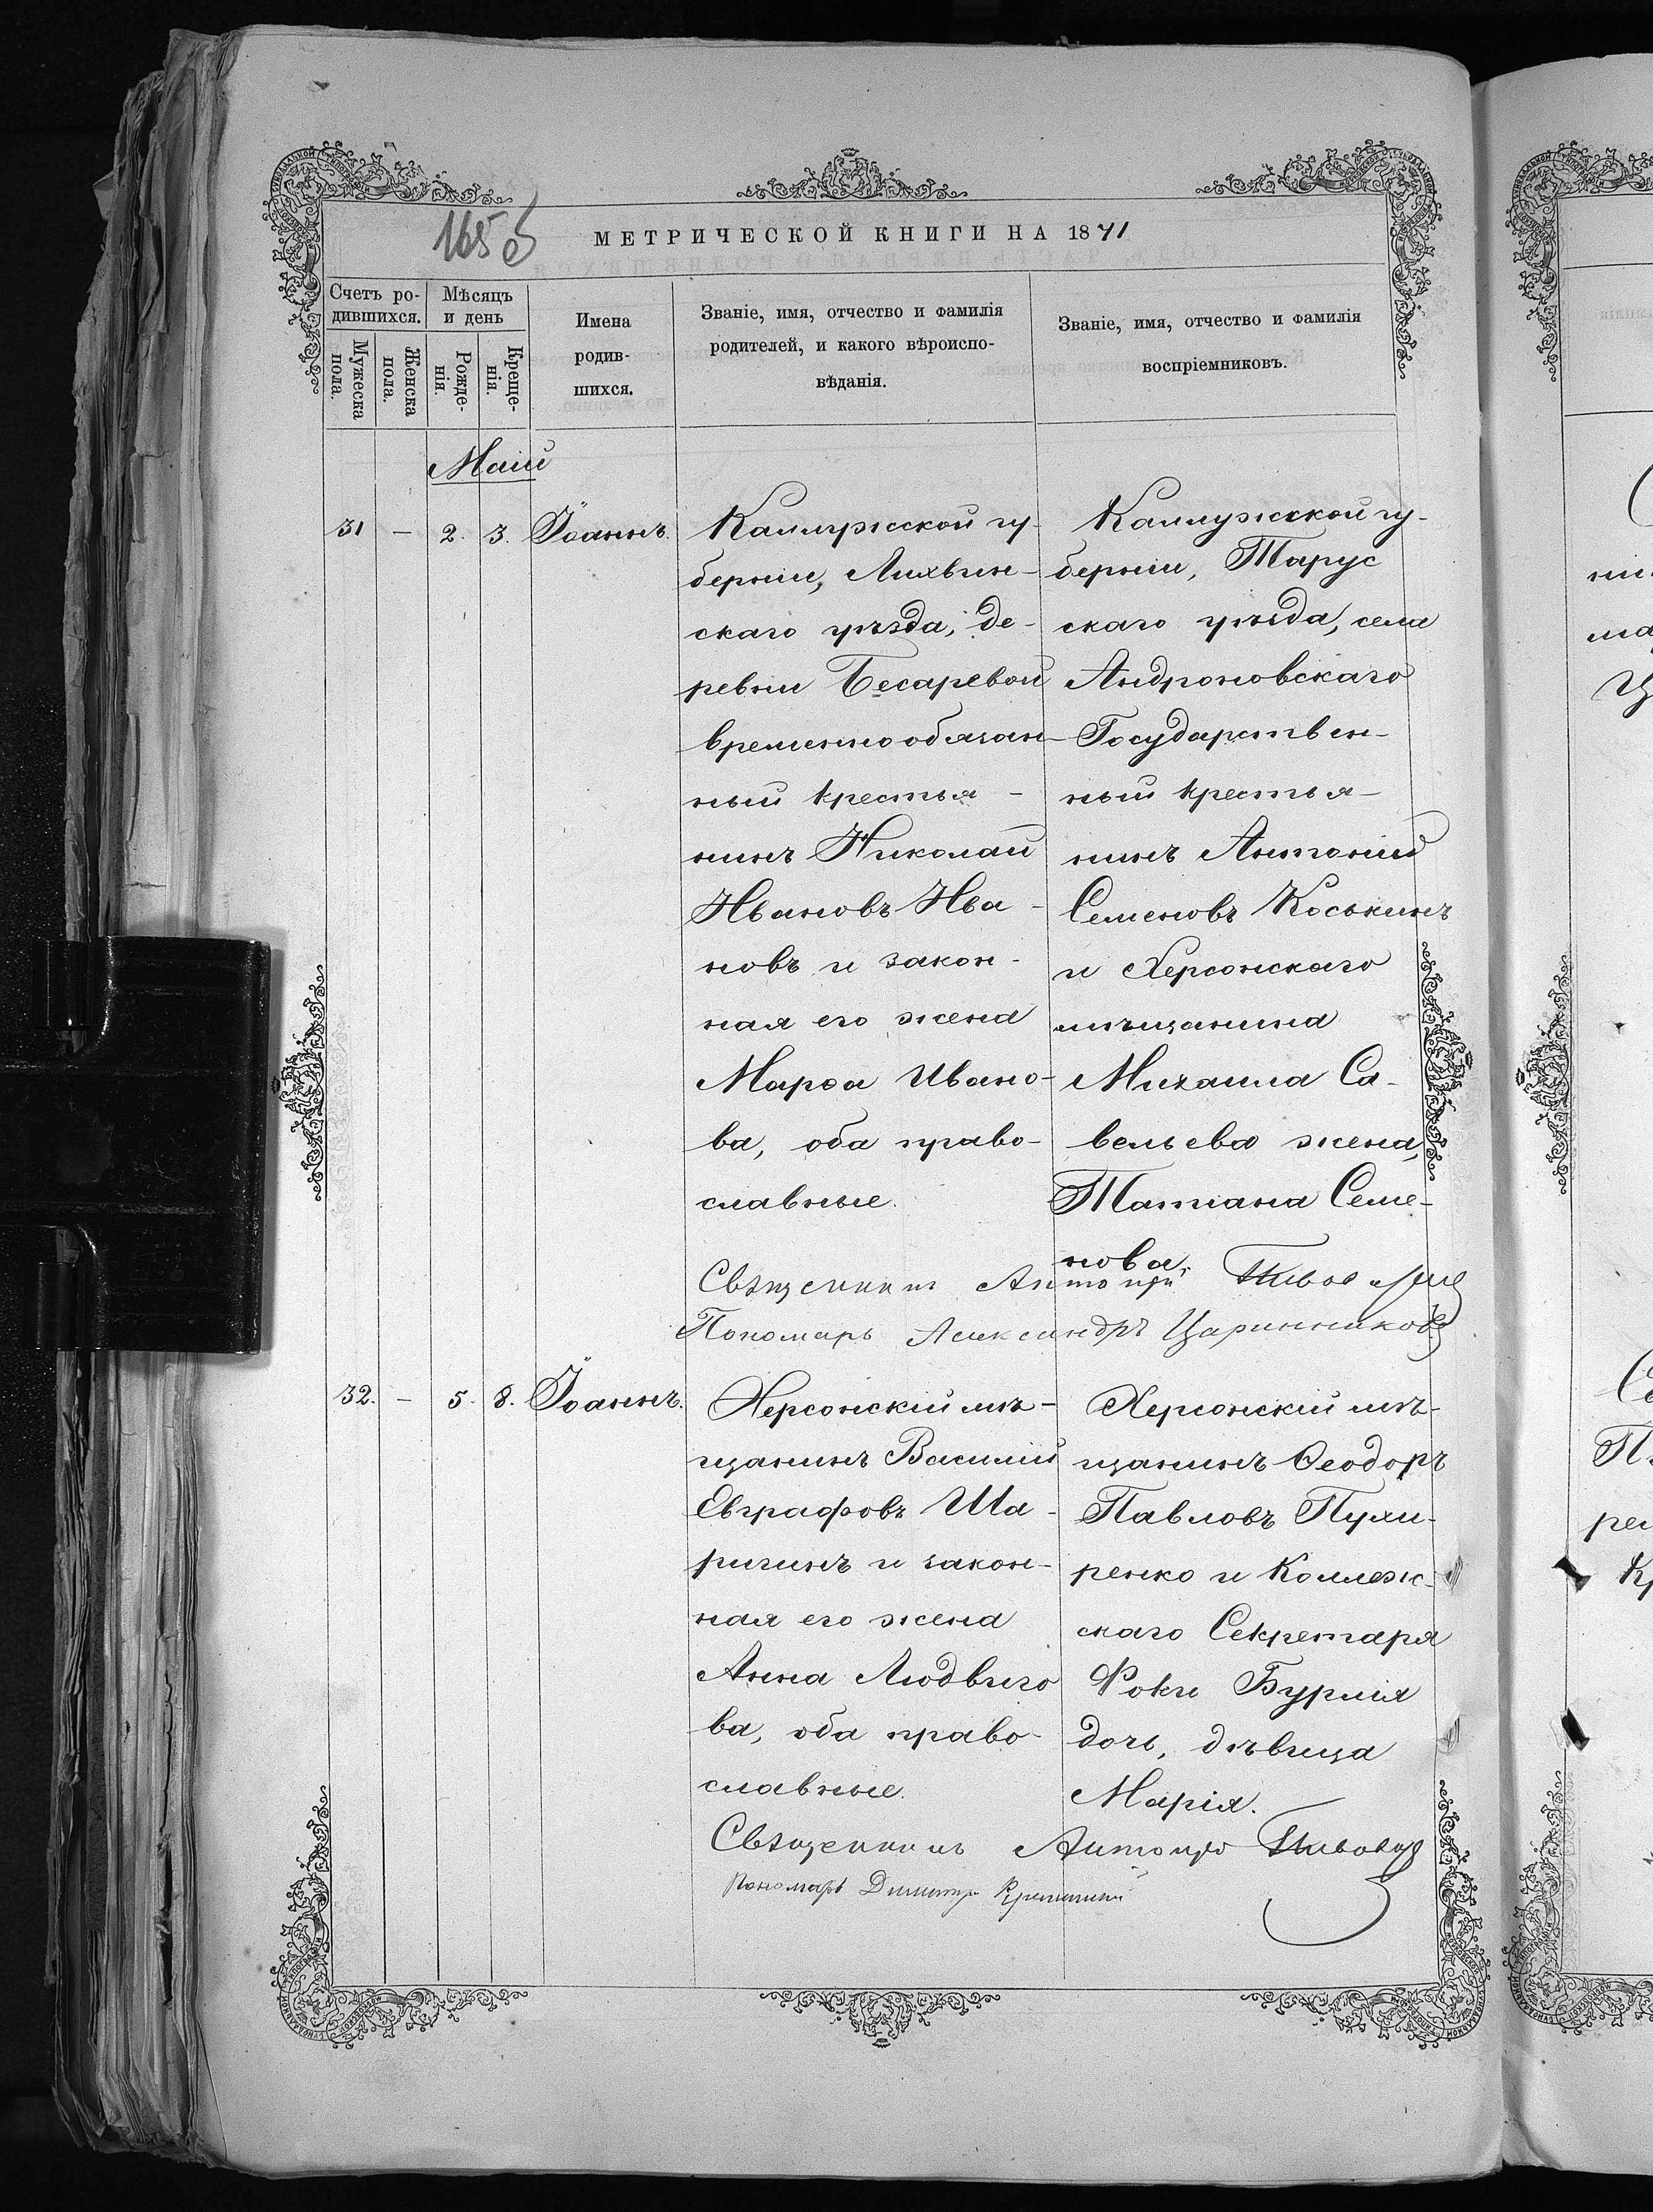 165 об
МЕТРИЧЕСКОЙ КНИГИ НА 1871
Счетъ ро-
дившихся.
Мѣсяцъ
и день
Имена
родив-
шихся.
Званіе, имя, отчество и фамилія
родителей, и какого вѣроиспо-
вѣданія.
Званіе, имя, отчество и фамилія
воспріемниковъ.
Мужеска
пола.
Женска
пола.
Рожде-
нія.
Креще-
нія.
Маій
31 — 2. 3. Іоаннъ.
Каллужской гу-
берніи, Лихвин-
скаго уѣзда, де-
ревни Бесаревой
временнообязан-
ный крестья-
нинъ Николай
Ивановъ Ива-
новъ и закон-
ная его жена
Марѳа Ивано-
ва, оба право-
славные.
Каллужской гу-
берніи, Тарус
скаго уѣзда, села
Андроновскаго
Государствен-
ный крестья-
нинъ Антоній
Семеновъ Коськинъ
и Херсонскаго
мѣщанина
Михаила Са-
вельева жена,
Татіана Семе-
нова.
Священникъ Антоній
Пономарь Александръ Царинниковъ
32. — 5. 8. Іоаннъ.
Херсонскій мѣ-
щанинъ Василій
Евграфовъ Ша-
ригинъ и закон-
ная его жена
Анна Людвиго
ва, оба право-
славные.
Херсонскій мѣ-
щанинъ Ѳеодоръ
Павловъ Пухи-
ренко и Коллеж-
скаго Секретаря
Фоки Бурлія
дочь, дѣвица
Марія.
Священникъ Антоній
Пономарь Димитр